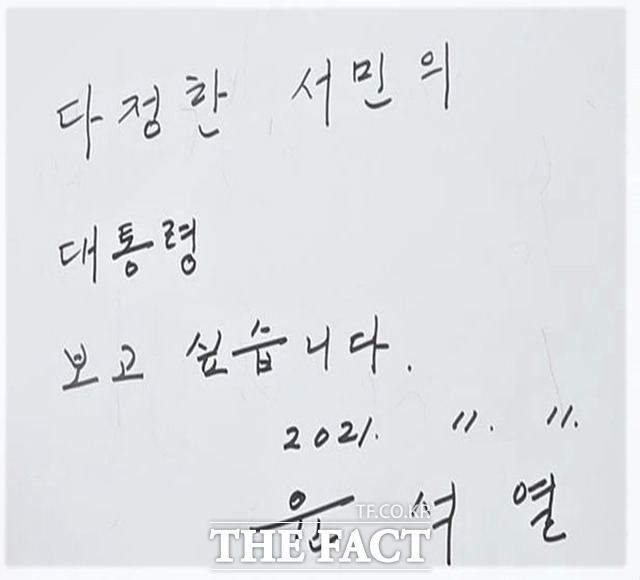 다정한 서민의
대통령
보고 싶습니다.
2021. 11. 11.
윤석열
TF.CO.KR
THE FACT